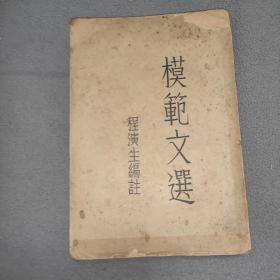 模範文選
程演生編註